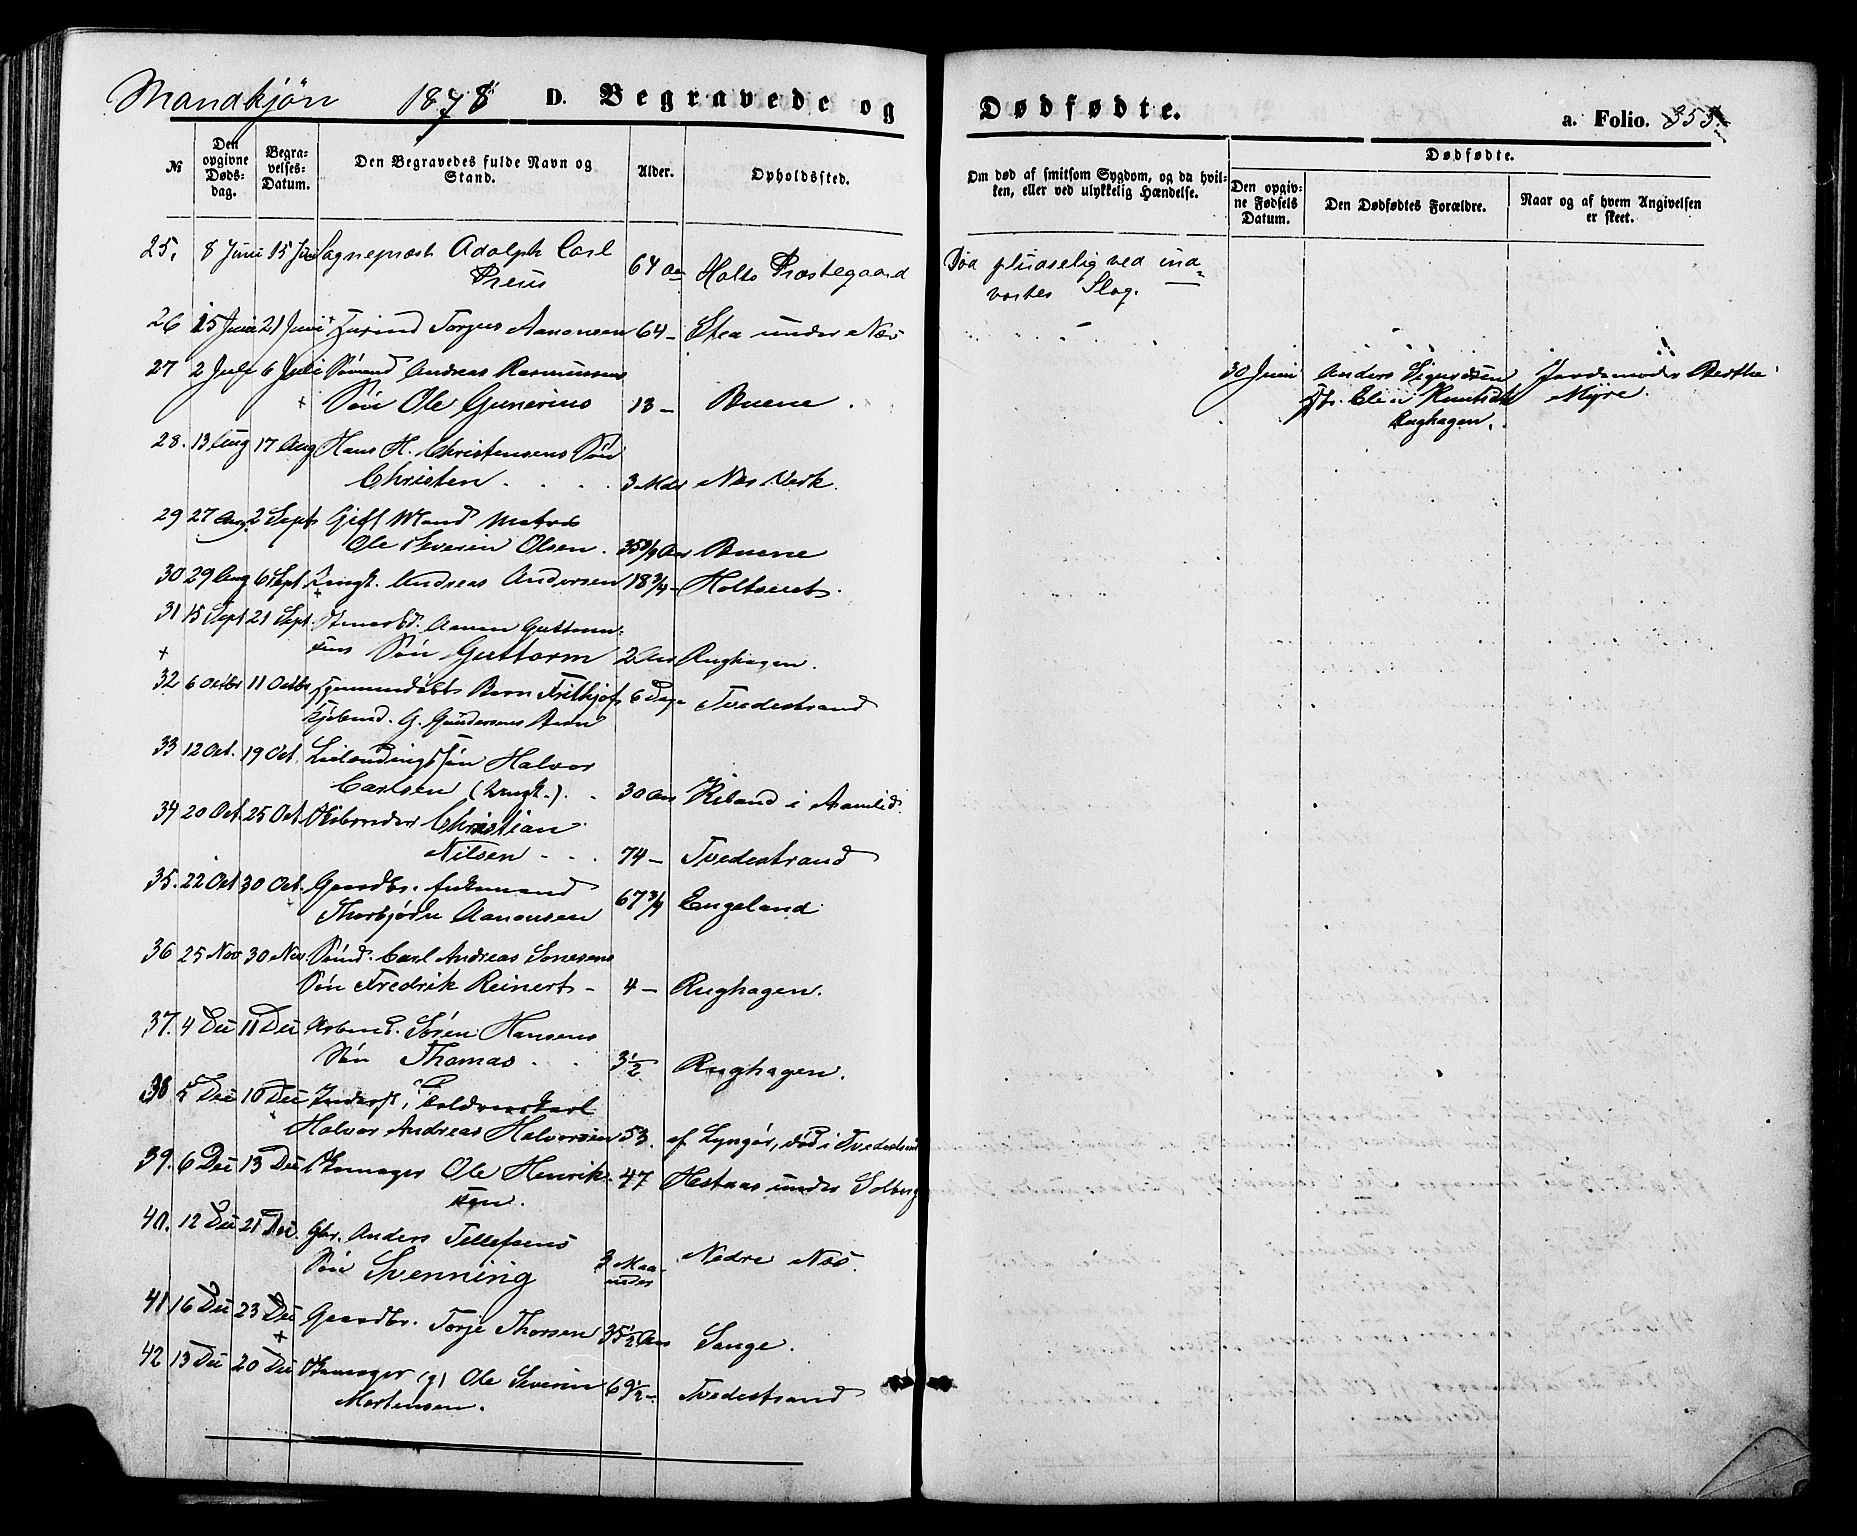 Mandkjøn 1878 D. Begravede og Dødfødte. a. Folio. 353.
№
Den opgivne Døds-dag.
Begra-velses-Datum.
Den Begravedes fulde Navn og Stand.
Alder.
Opholdssted.
Om død af smitsom Sygdom, og da hvil-ken, eller ved ulykkelig Hændelse.
Dødfødte.
Den opgiv-ne Fødsels Datum.
Den Dødfødtes Forældre.
Naar og af hvem Angivelsen er skeet.
25. 8 Juni 15 Juni Sognepræst Adolph Carl
Preus 64 Aar Holts Præstegaard Død pludselig ved ind-
vortes Slag.
26 15 Juni 21 Juni Torjus Aanonsen 64 - Stea under Næs
27 2 Juli 6 Juli Sømand Andreas Rasmussens
Søn Ole Gunerius 13 - Buene.
30 Juni Anders Sigurdsen Jordemoder Berthe
Elin Knutsdt Myre.
Rughagen.
28. 13 Aug 17 Aug Hans H. Christensens Søn
Christen 3 Mdr Næs Verk.
29 27 Aug. 2 Sept Gift Mand Matros
Ole Severin Olsen. 35 3/4 Aar Buene
30 29 Aug 6 Sept Ungk. Andreas Andersen 18 3/4 - Holtereet.
31 15 Sept 21 Sept. Aanen Guttorm-
sens Søn Guttorm 2 Aar Rughagen.
32 6 Octbr 11 Octbr Hjemmedøbt Barn Frithjof 6 Dage Tvedestrand
Kjøbmd. G. Gundersens Barn
33 12 Oct. 19 Oct. Halvor
Carlsen (Ungk.). 30 Aar Riland i Aamlid.
34 20 Oct. 25 Oct. Christian
Nilsen 74 - Tvedestrand
35. 22 Oct 30 Oct. Gaardbr. Enkemand
Thorbjørn Aanonsen 67 3/4 Engeland
36 25 Nov 30 Nov Sømd. Carl Andreas Sørensens
Søn Fredrik Reinert - 4 - Rughagen.
37. 4 Dec 11 Dec Arbmd. Søren Hansens
Søn Thomas 3 1/2 Rughagen.
38 5 Dec 10 Dec Inderst,
Halvor Andreas Halvorsen 53. af Lyngør, død i Tvedestrand
39. 6 Dec 13 Dec Skomager Ole Henrik-
sen. 47 Hestaas under Solberg
40. 12 Dec 21 Dec. Gbr. Anders Tellefsens
Søn Svenning 3 Maa-
neder Nedre Næs.
41 16 Dec 23 Dec Gaardbr. Torje Thorsen 35 1/2 Aar Sange.
42 13 Dec 20 Dec Skomager (g) Ole Severin
Mortensen. 69 1/2 - Tvedestrand